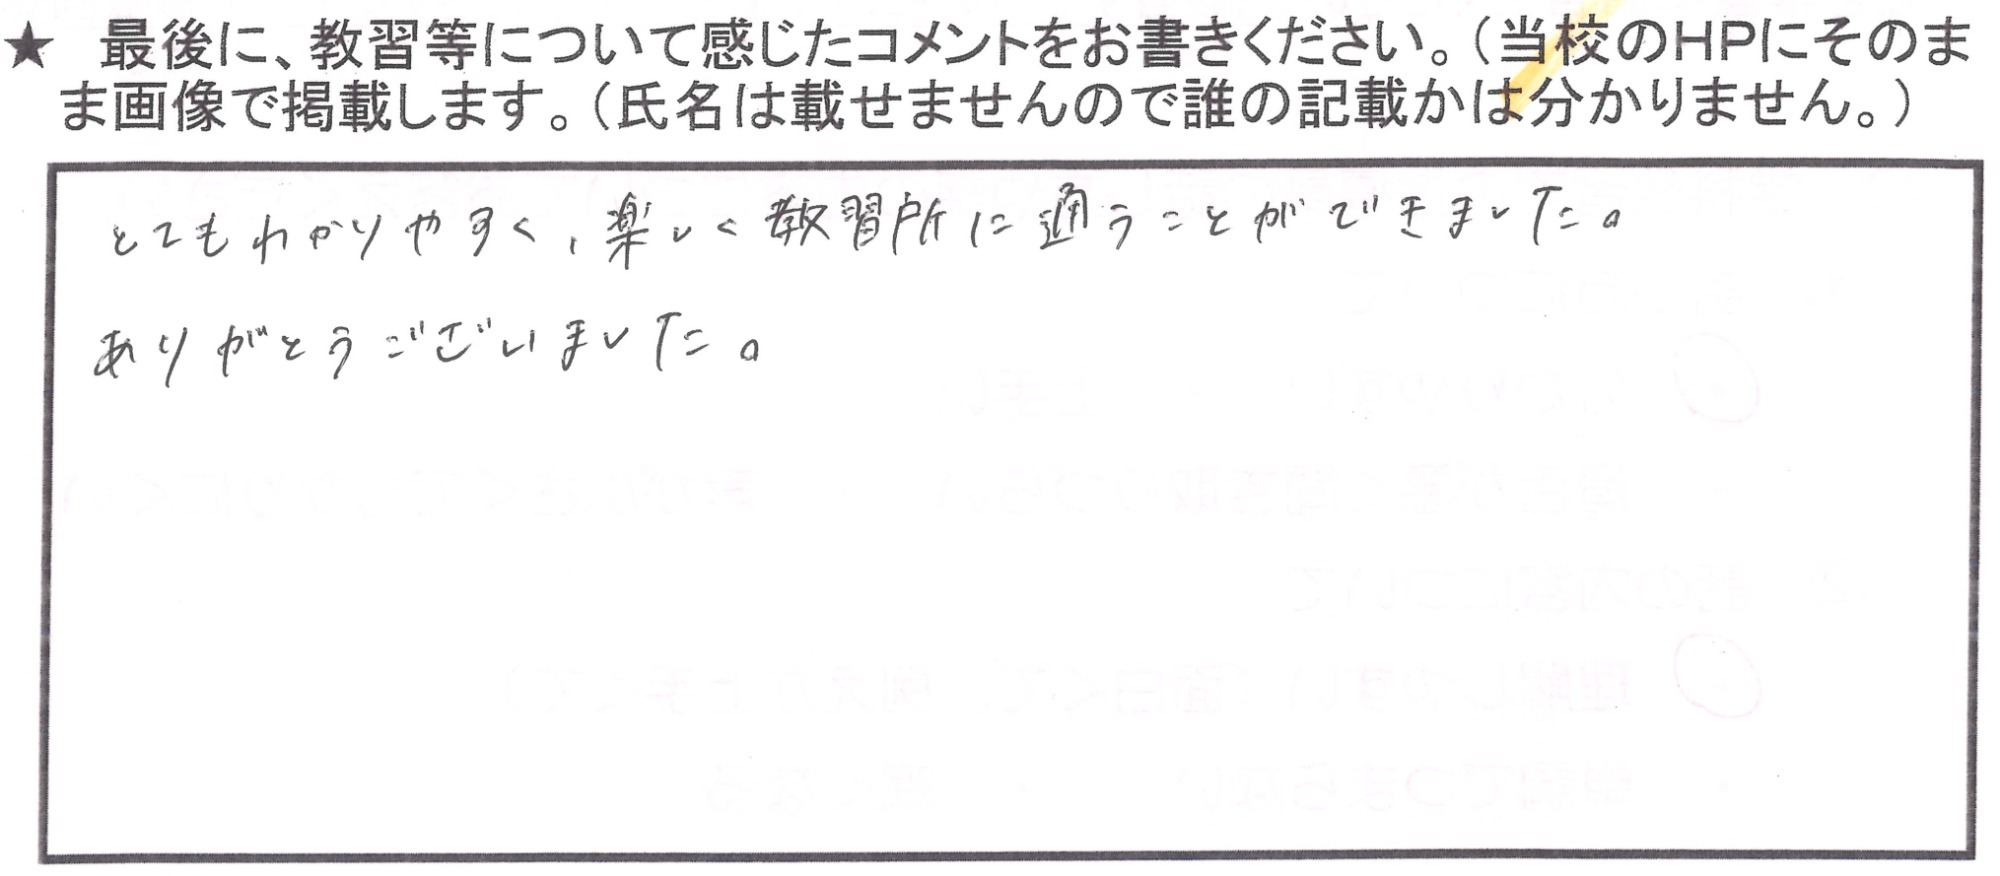 ★ 最後に、教習等について感じたコメントをお書きください。（当校のHPにそのま
ま画像で掲載します。（氏名は載せませんので誰の記載かは分かりません。）
とてもわかりやすく、楽しく教習所に通うことができました。
ありがとうございました。